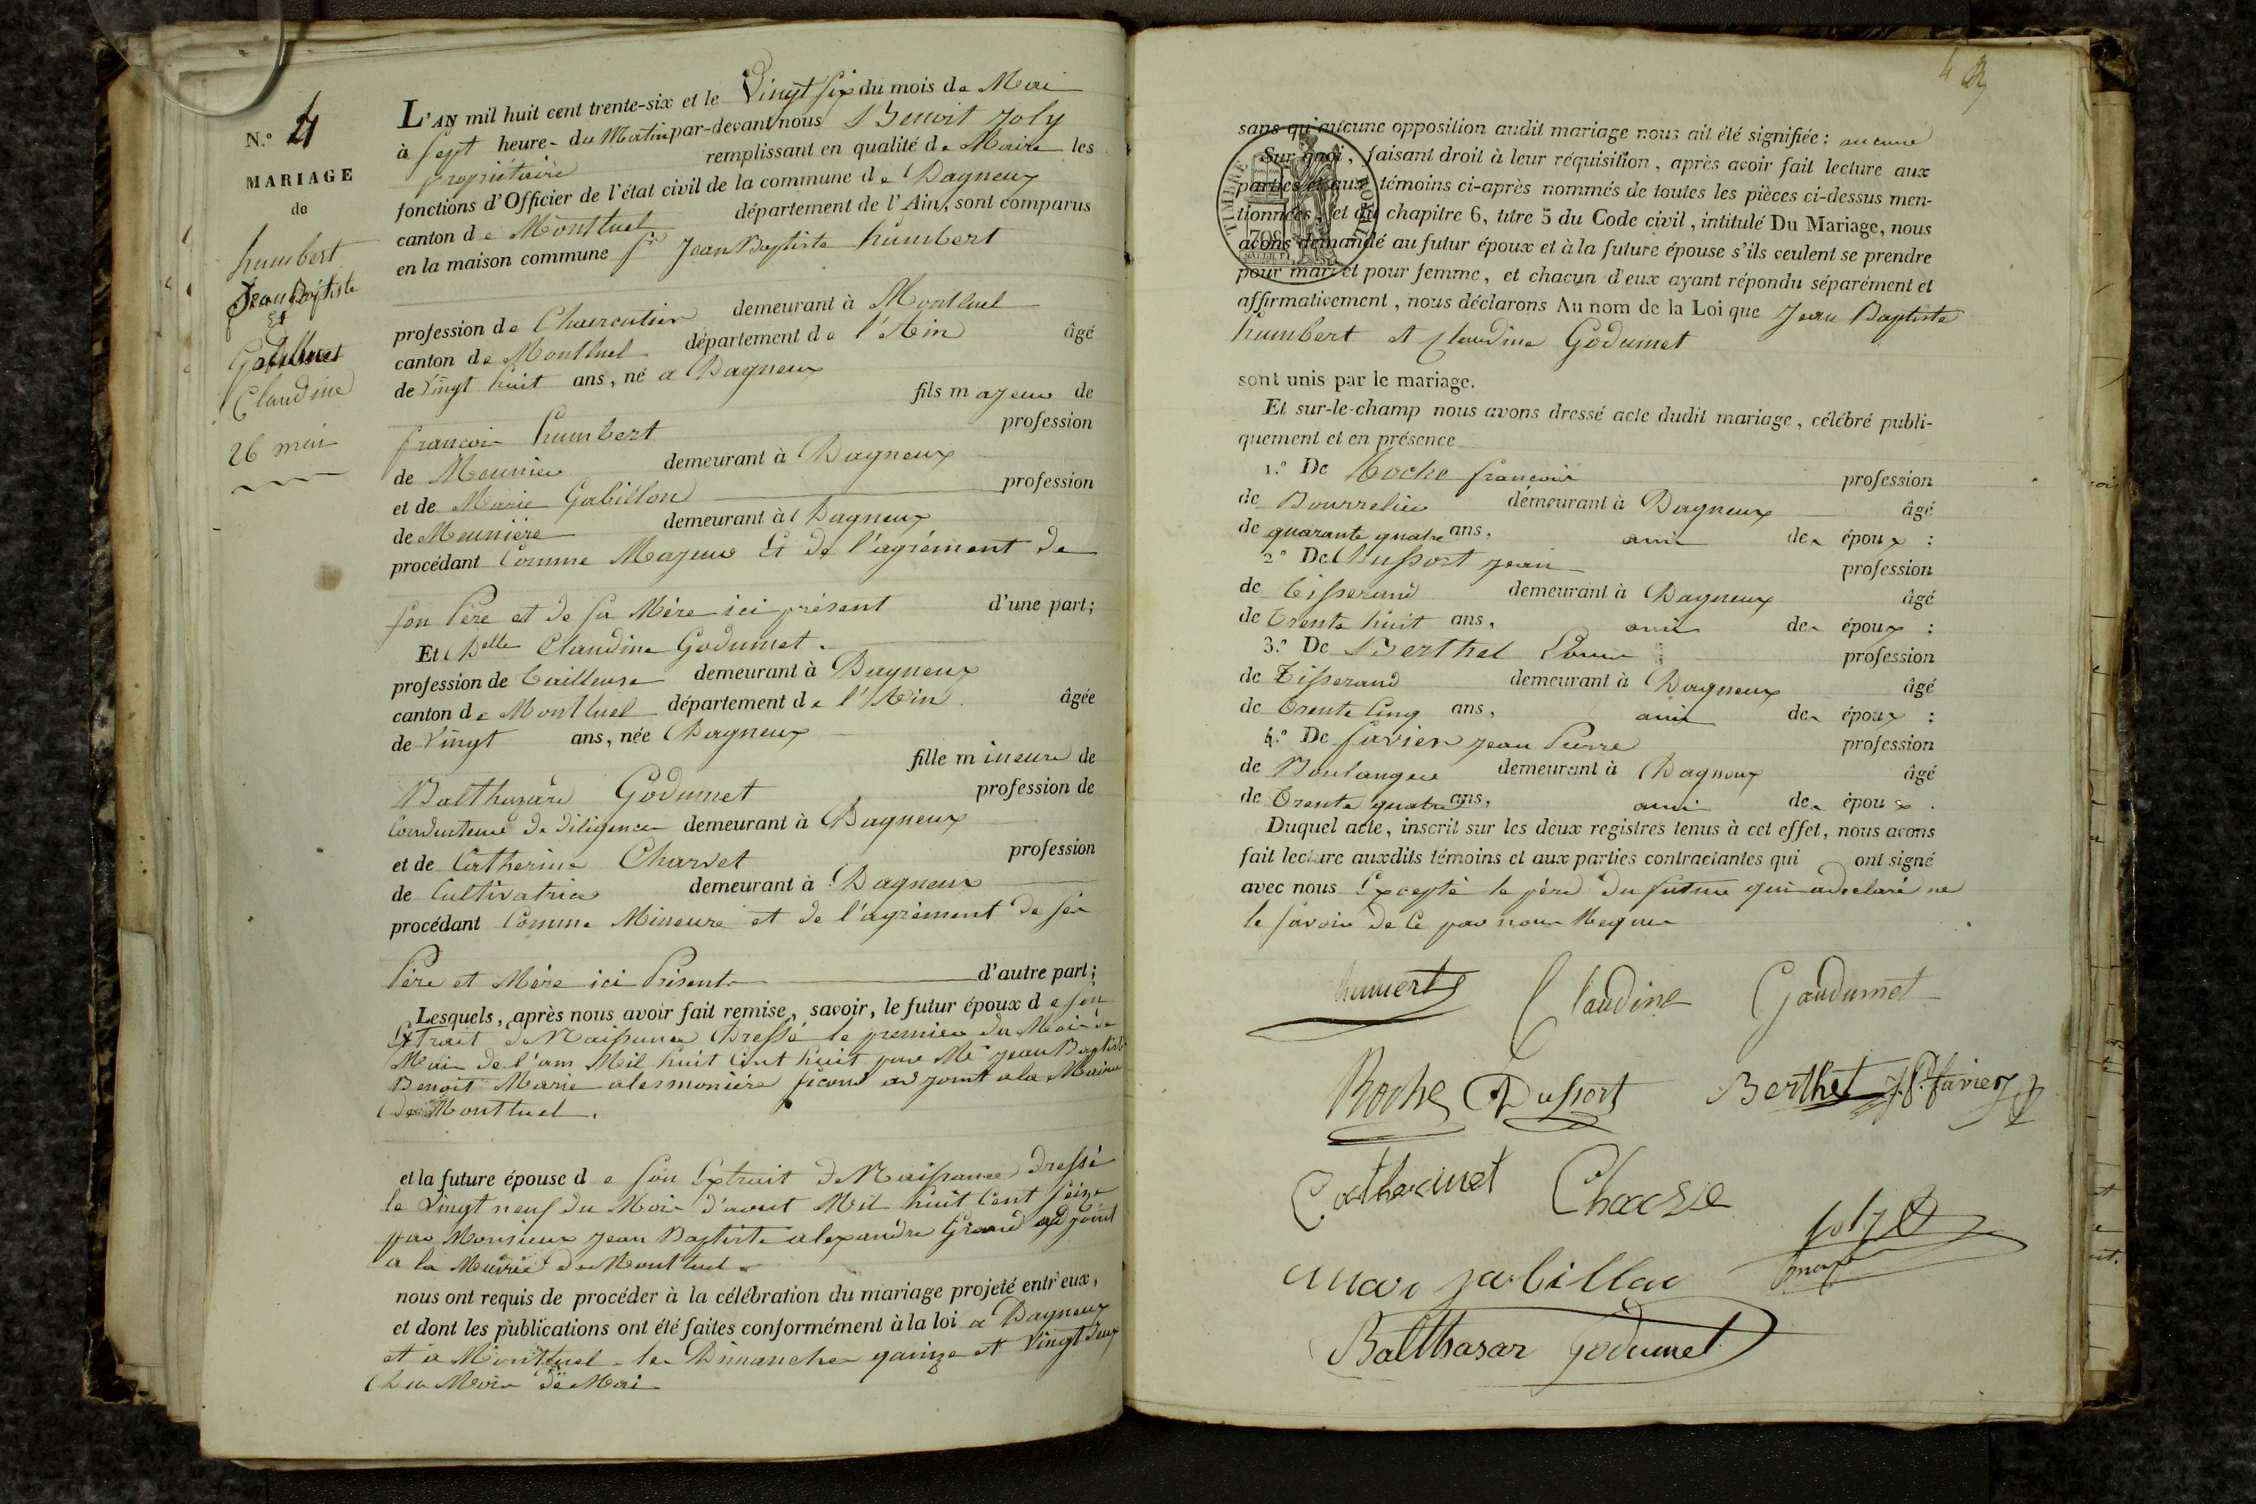 N.º 4
MARIAGE
de
humbert
Jean Baptiste
Et
Claudine
26 mai
L'AN mil huit cent trente-six et le Vingt six du mois de Mai
à sept heure du Matin par-devant nous Benoit Joly
propriétaire remplissant en qualité de Maire les
fonctions d'Officier de l'état civil de la commune de Dagneux
canton de Montluel département de l'Ain, sont comparus
en la maison commune sr Jean Baptiste humbert
profession de Chaircutier demeurant à Montluel
canton de Montluel département de l'Ain âgé
de Vingt huit ans, né a Dagneux
fils majeur de
francois humbert profession
de Meunier demeurant à Dagneux
et de Marie Gabillon profession
de Meunière demeurant à Dagneux
procédant Comme Majeur Et de l'agrément de
son Père et de sa Mère ici présent d'une part;
Et Delle Claudine Godumet.
profession de tailleuse demeurant à Dagneux
canton de Montluel département de l'Ain. âgée
de Vingt ans, née Dagneux
fille mineure de
Balthazare Godumet profession de
Conducteur de diligence demeurant à Dagneux
et de Catherine Charvet profession
de Cultivatrice demeurant à Dagneux
procédant Comme Mineure et de l'agrément de ses
Père et Mère ici Présents d'autre part;
Lesquels, après nous avoir fait remise, savoir, le futur époux de son
Extrait de Naissance Dressé le premier du Mois de
Mai de l'an Mil huit Cent huit par Mr Jean Baptiste
Benoit Marie alesmonière second adjoint a la Mairie
De Montluel.
et la future épouse de son Extrait de Naissance dressé
le Vingt neuf du Mois d'aout Mil huit Cent seize
par Monsieur Jean Baptiste alexandre Girard adjoint
a la Mairie de Montluel
nous ont requis de procéder à la célébration du mariage projeté entr'eux,
et dont les publications ont été faites conformément à la loi a Dagneux
et à Montluel les Dimanches quinze et Vingt deux
Du Mois de Mai
sans qu'aucune opposition audit mariage nous ait été signifiée; aucune
Sur quoi, faisant droit à leur réquisition, après avoir fait lecture aux
parties et aux témoins ci-après nommés de toutes les pièces ci-dessus men-
tionnées, et du chapitre 6, titre 5 du Code civil, intitulé Du Mariage, nous
avons demandé au futur époux et à la future épouse s'ils veulent se prendre
pour mari et pour femme, et chacun d'eux ayant répondu séparément et
affirmativement, nous déclarons Au nom de la Loi que Jean Baptiste
humbert et Claudine Godumet
sont unis par le mariage.
Et sur-le-champ nous avons dressé acte dudit mariage, célébré publi-
quement et en présence
1.º De Roche francois profession
de Bourrelier demeurant à Dagneux âgé
de quarante quatre ans, ami des époux :
2.º De Dussort jean profession
de tisserand demeurant à Dagneux âgé
de trente huit ans, ami des époux :
3.º De Berthet Louis profession
de Tisserand demeurant à Dagneux âgé
de trente Cinq ans, ami des époux :
4.º De favier jean Pierre profession
de Boulanger demeurant à Dagneux âgé
de trente quatre ans, ami des époux.
Duquel acte, inscrit sur les deux registres tenus à cet effet, nous avons
fait lecture auxdits témoins et aux parties contractantes qui ont signé
avec nous Excepté le père du future qui a declaré ne
le savoir de Ce par nous Requis
TIMBRE ROYAL
humert Claudine Gaudumet
Roche Dussort Berthet J. P. favier
Catherinet
Joly
maire
jabillac
Balthasar Godumet